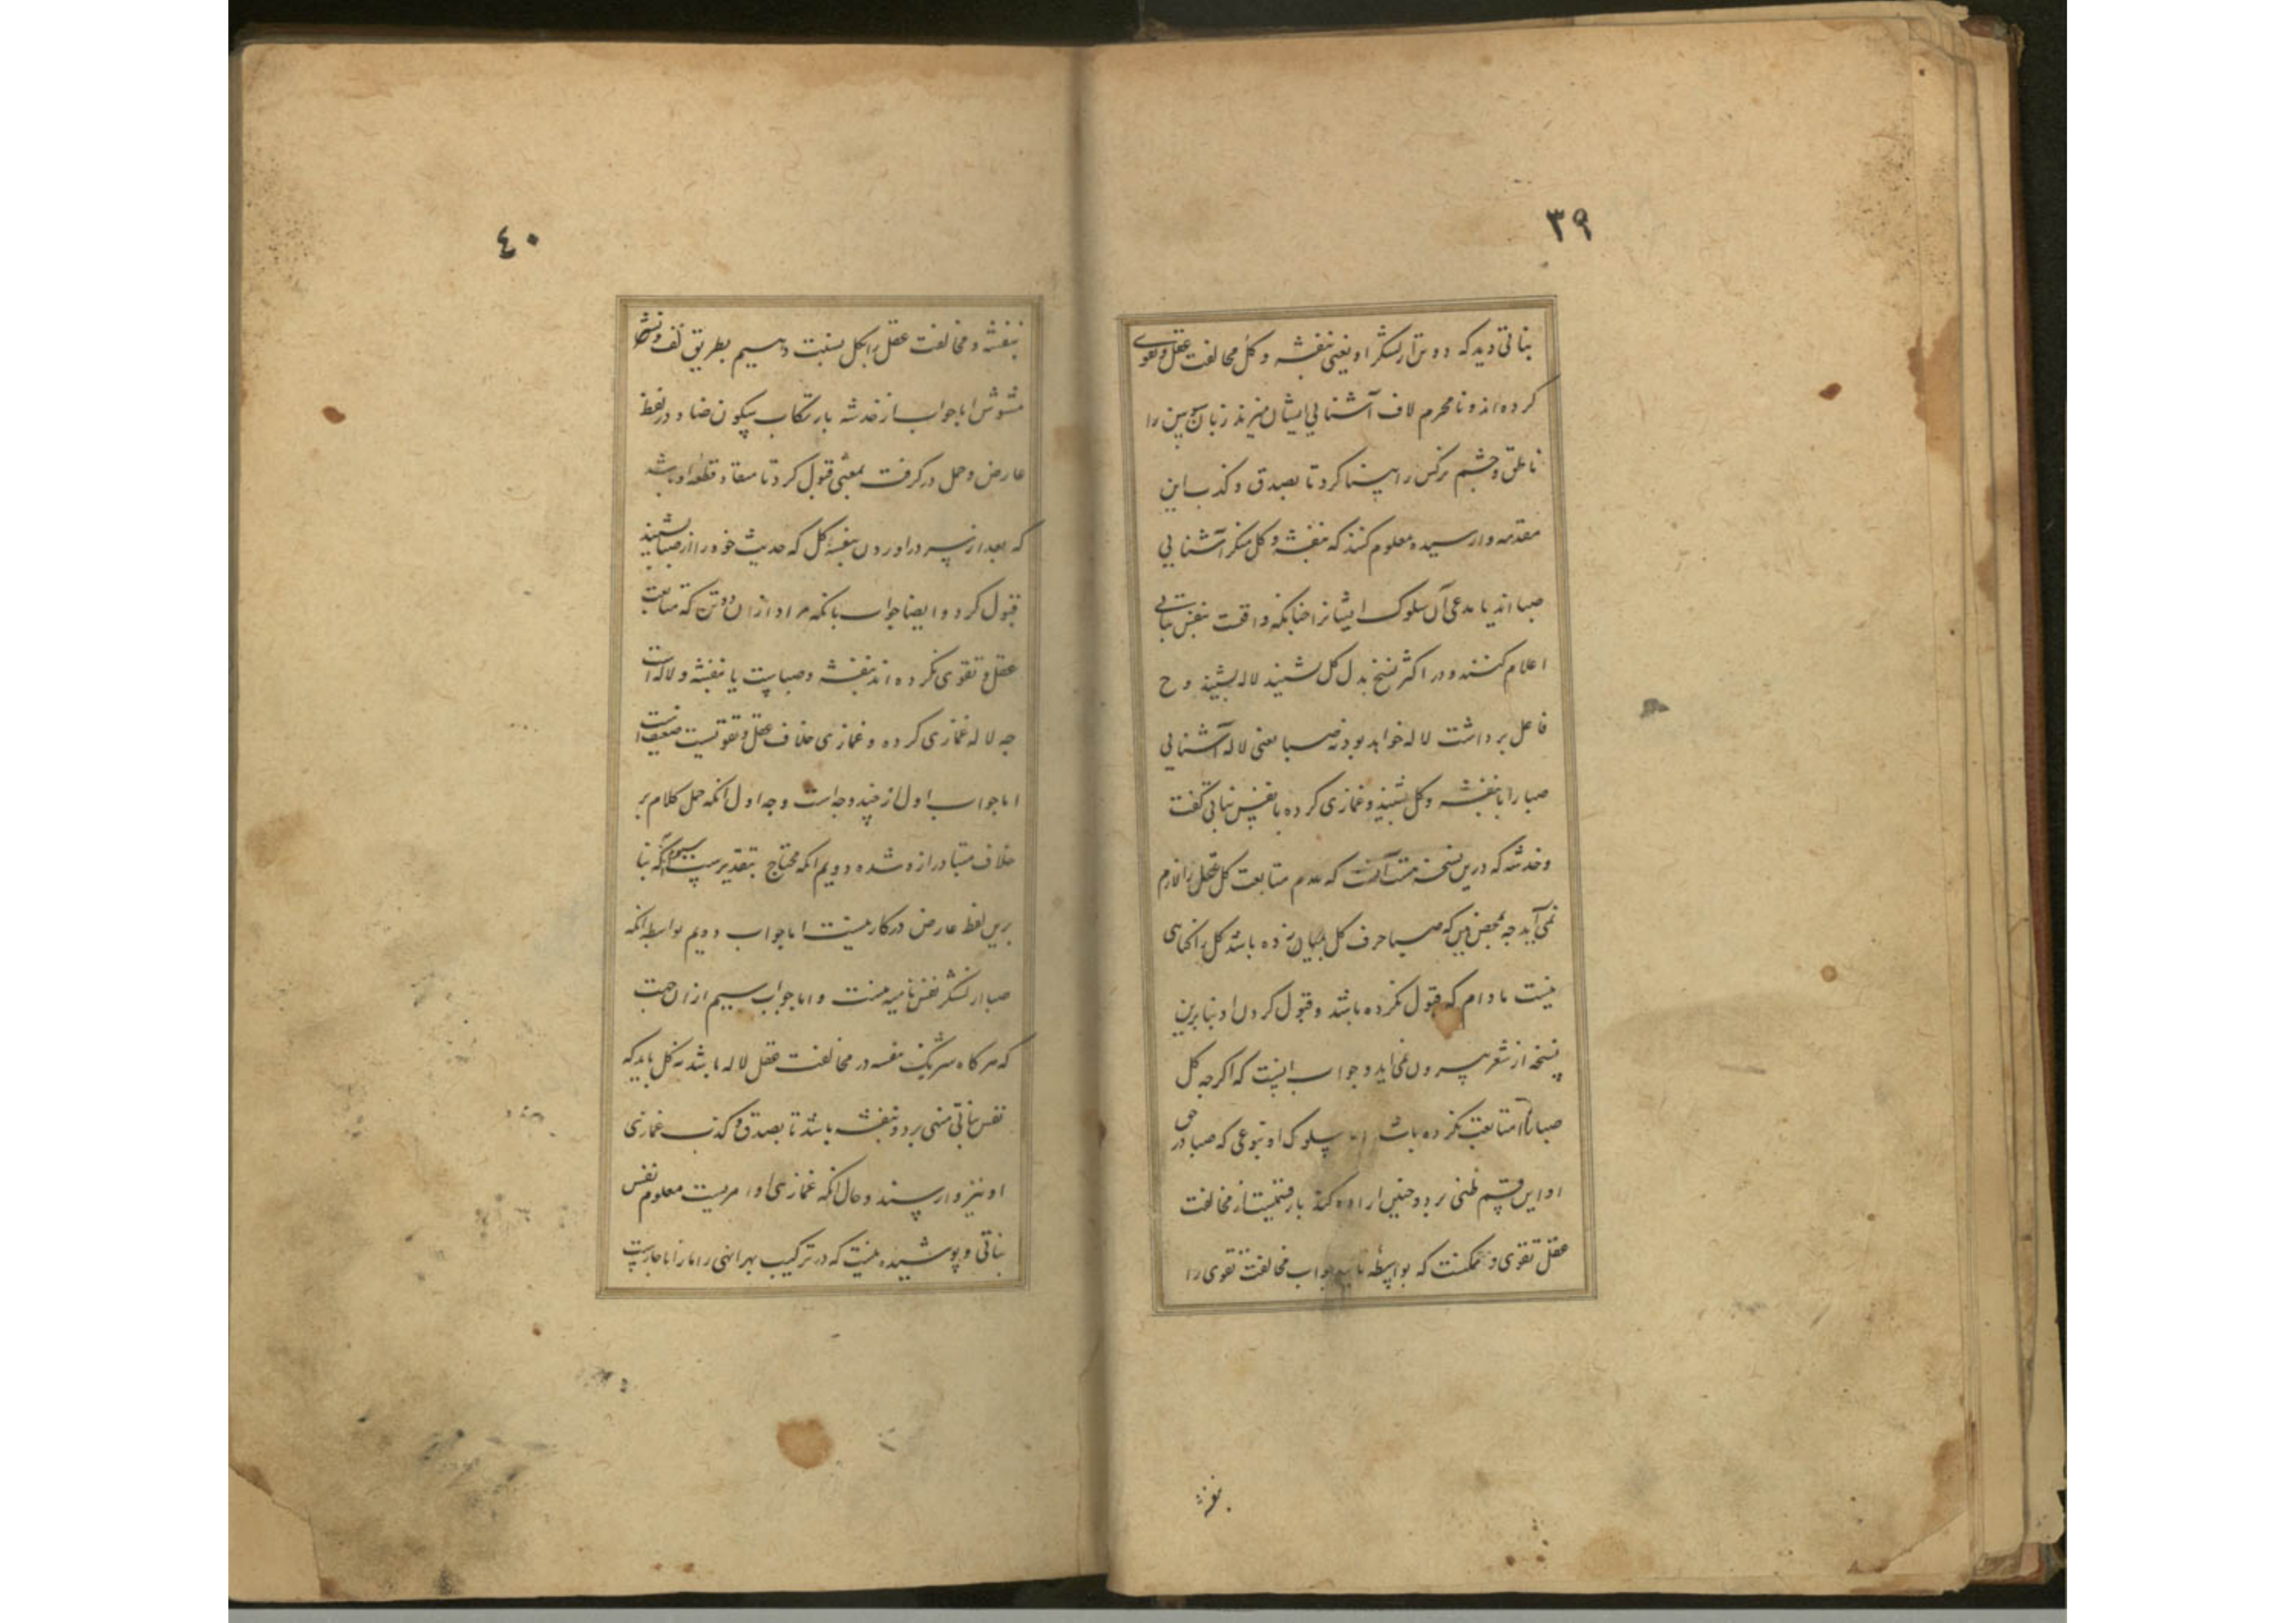 ۳۹
نباتی دید که دو تن از لشکر او یعنی بنفشه و کل مخالفت عقل و تقوی
کرده اند و نامحرم لاف آشنایی ایشان میزند زبان سوسن را
ناطق و چشم نرکس را بینا کرد تا بصدق و کذب این
مقدمه وارسیده معلوم کنند که بنفشه و کل منکر آشنایی
صبا اند یا مدعی آن سلوک ایشانرا چنانکه واقعست بنفس نباتی
اعلام کنند و در اکثر نسخ بدل کل شنید لاله شنید و ح
فاعل برداشت لاله خواهد بود نه صبا یعنی لاله آشنایی
صبا را با بنفشه و کل شنید و غمازی کرده با نفس نباتی کفت
و خدشه که درین نسخه هست آنست که عدم متابعت کل عقل را لازم
نمی آید چه بمحض همین که صبا حرف کل بمیان زده باشد کل را کناهی
نیست مادام که قبول نکرده باشد و قبول کردن او بنابرین
نسخه از شعر بیرون نمی آید و جواب اینست که اکرچه کل
صبا را متابعت نکرده باشد اما سلوک او بنوعی که صبا در حق
او این قسم ظنی برد و چنین اراده کند بار قسمیست از مخالفت
عقل و تقوی و ممکنست که بواسطه تایید جواب مخالفت تقوی را
بنفشه
٤٠
بنفشه و مخالفت عقل را بکل نسبت دهیم بطریق لف و نشر
مشوش اما جواب از خدشه بارتکاب سکون ضاد در لفظ
عارض و حمل در کرفت بمعنی قبول کرد تا مفاد قطعه او باشد
که بعد از سر در اوردن بنفشه کل که حدیث خود را از صبا شنید
قبول کرد و ایضا جواب بانکه مراد ازان دو تن که متابعت
عقل و تقوی نکرده اند بنفشه و صباست یا بنفشه و لاله است
چه لاله غمازی کرده و غمازی خلاف عقل و تقویست ضعیف است
اما جواب اول از چند وجه است وجه اول انکه حمل کلام بر
خلاف متبادر ازو شده دویم انکه محتاج بتقدیر است سیم انکه بنا
برین لفظ عارض در کار نیست اما جواب دویم بواسطه انکه
صبا از لشکر نفس نامیه نیست و اما جواب سیم ازان جهت
که هر کاه شریک بنفشه در مخالفت عقل لاله باشد نه کل باید که
نفس نباتی منهی بر دو بنفشه باشد تا بصدق و کذب غمازی
او نیز وارسند و حال انکه غمازی او امریست معلوم نفس
نباتی و پوشیده نیست که در ترکیب بهر انهی را ما را با جارست